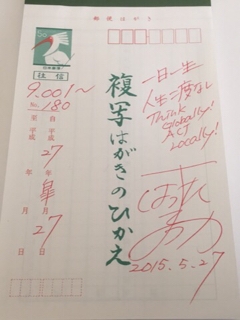 郵便はがき
50
往信
9.001～
No. 180
自 平成 27 年 皐月 27 日
至 平成 年 月 日
複写はがきのひかえ
一日一生
人生二度なし
Think
Globally!
ACT
Locally!
2015.5.27